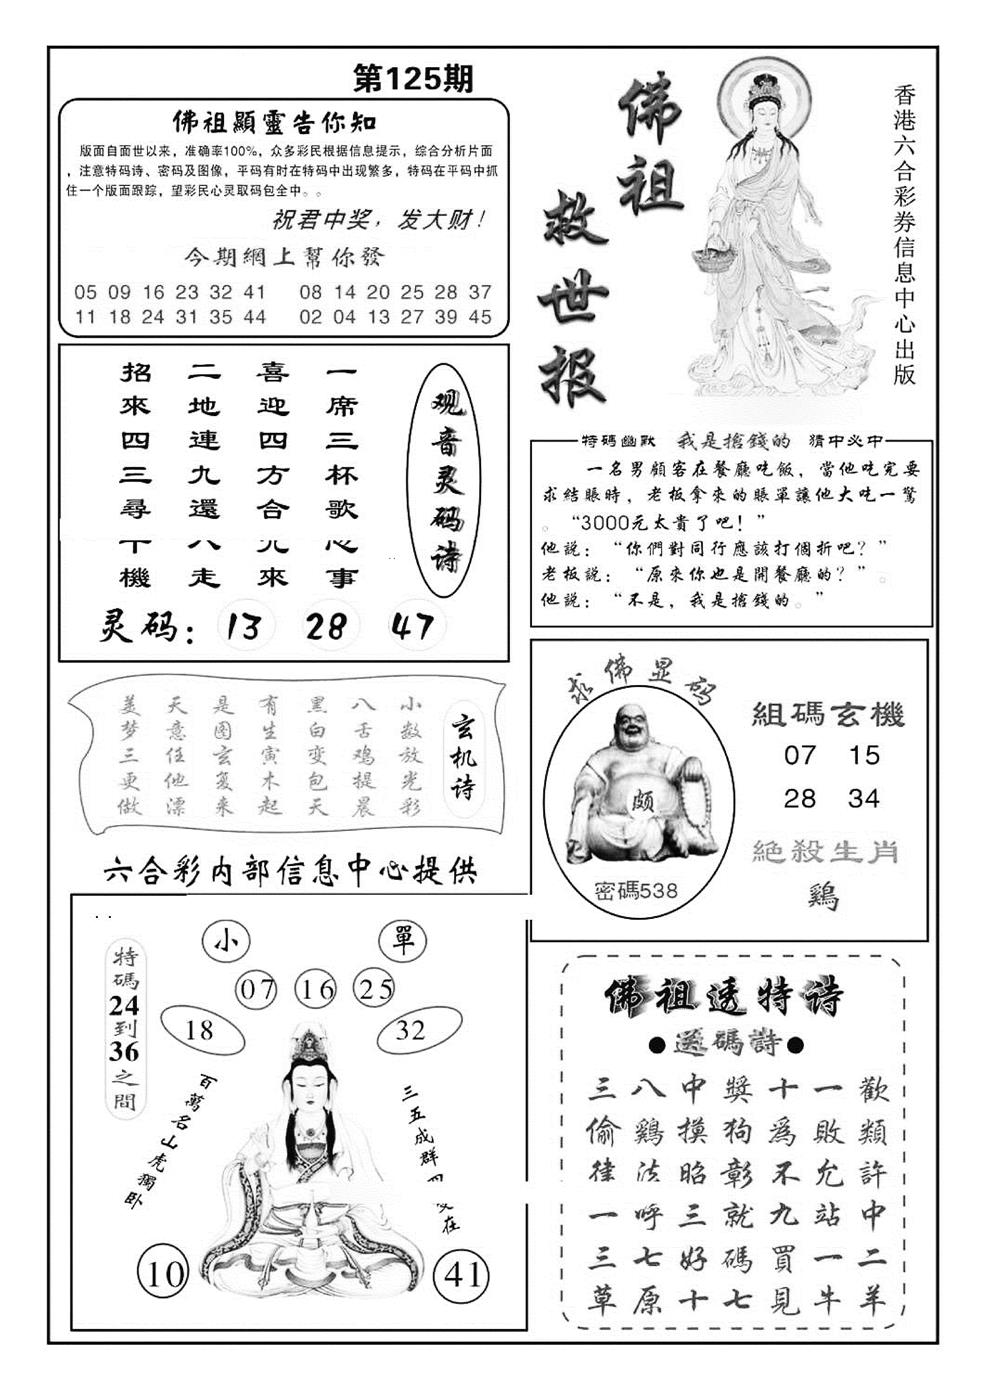 第125期
佛祖顯靈告你知
版面自面世以来，准确率100%，众多彩民根据信息提示，综合分析片面
，注意特码诗、密码及图像，平码有时在特码中出现繁多，特码在平码中抓
住一个版面跟踪，望彩民心灵取码包全中。。
祝君中奖，发大财！
今期網上幫你發
05 09 16 23 32 41 08 14 20 25 28 37
11 18 24 31 35 44 02 04 13 27 39 45
佛祖
救世报
香港六合彩券信息中心出版
观音灵码诗
一席三杯歌心事
喜迎四方合九來
二地連九還八走
招來四三尋十機
灵码：13 28 47
特碼幽默 我是搶錢的 猜中必中
一名男顧客在餐廳吃飯，當他吃完要
求結賬時，老板拿來的賬單讓他大吃一驚
。“3000元太貴了吧！”
他說：“你們對同行應該打個折吧？”
老板說：“原來你也是開餐廳的？”。
他說：“不是，我是搶錢的。”
玄机诗
小数放光彩
八舌鸡提晨
黑白变包天
有生寅木起
是图玄复来
天意任他漂
美梦三更做
六合彩内部信息中心提供
求佛显码
颇
密碼538
組碼玄機
07 15
28 34
絕殺生肖
鷄
小 單
07 16 25
18 32
特碼24到36之間
百萬名山虎獨卧
三五成群四
在
10 41
佛祖透特诗
●送碼詩●
歡類許中二羊
一敗允站一牛
十為不九買見
獎狗彰就碼七
中摸昭三好十
八鷄法呼七原
三偷律一三草